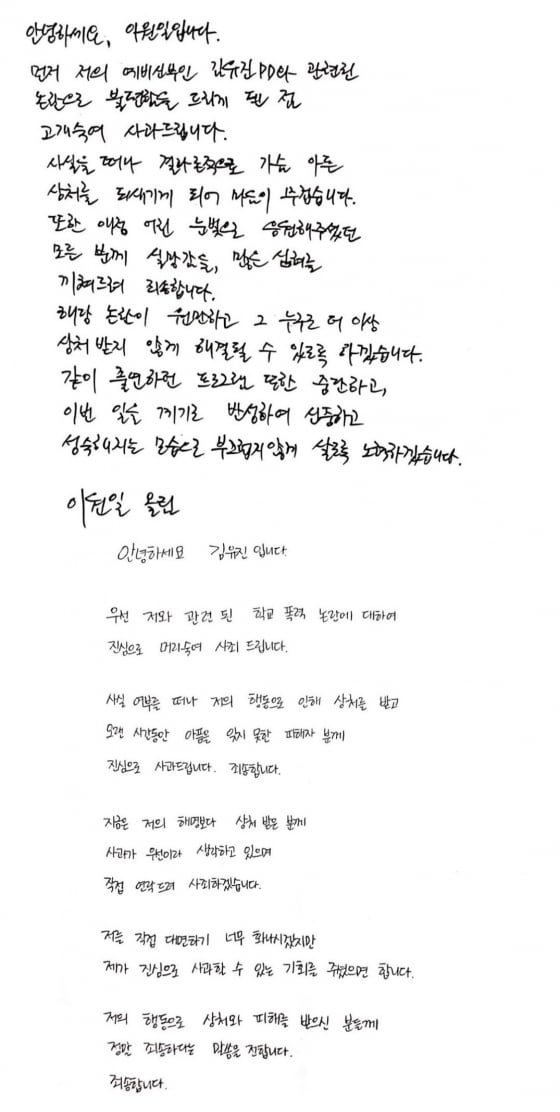 안녕하세요, 이원일입니다.
먼저 저의 예비신부인 김유진PD와 관련된
논란으로 불편함을 드리게 된 점
고개숙여 사과드립니다.
사실을 떠나 결과론적으로 가슴 아픈
상처를 되새기게 되어 마음이 무겁습니다.
또한 애정 어린 눈빛으로 응원해주셨던
모든 분께 실망감을, 많은 심려를
끼쳐드려 죄송합니다.
해당 논란이 원만하고 그 누구도 더 이상
상처 받지 않게 해결될 수 있도록 하겠습니다.
같이 출연하던 프로그램 또한 중단하고,
이번 일을 계기로 반성하여 신중하고
성숙해지는 모습으로 부끄럽지않게 살도록 노력하겠습니다.
이원일 올림
안녕하세요 김유진 입니다.
우선 저와 관련 된 학교 폭력 논란에 대하여
진심으로 머리숙여 사죄 드립니다.
사실 여부를 떠나 저의 행동으로 인해 상처를 받고
오랜 시간동안 아픔을 잊지 못한 피해자 분께
진심으로 사과드립니다. 죄송합니다.
지금은 저의 해명보다 상처 받은 분께
사과가 우선이라 생각하고 있으며
직접 연락드려 사죄하겠습니다.
저를 직접 대면하기 너무 화나시겠지만
제가 진심으로 사과할 수 있는 기회를 주셨으면 합니다.
저의 행동으로 상처와 피해를 받으신 분들께
정말 죄송하다는 말씀을 전합니다.
죄송합니다.